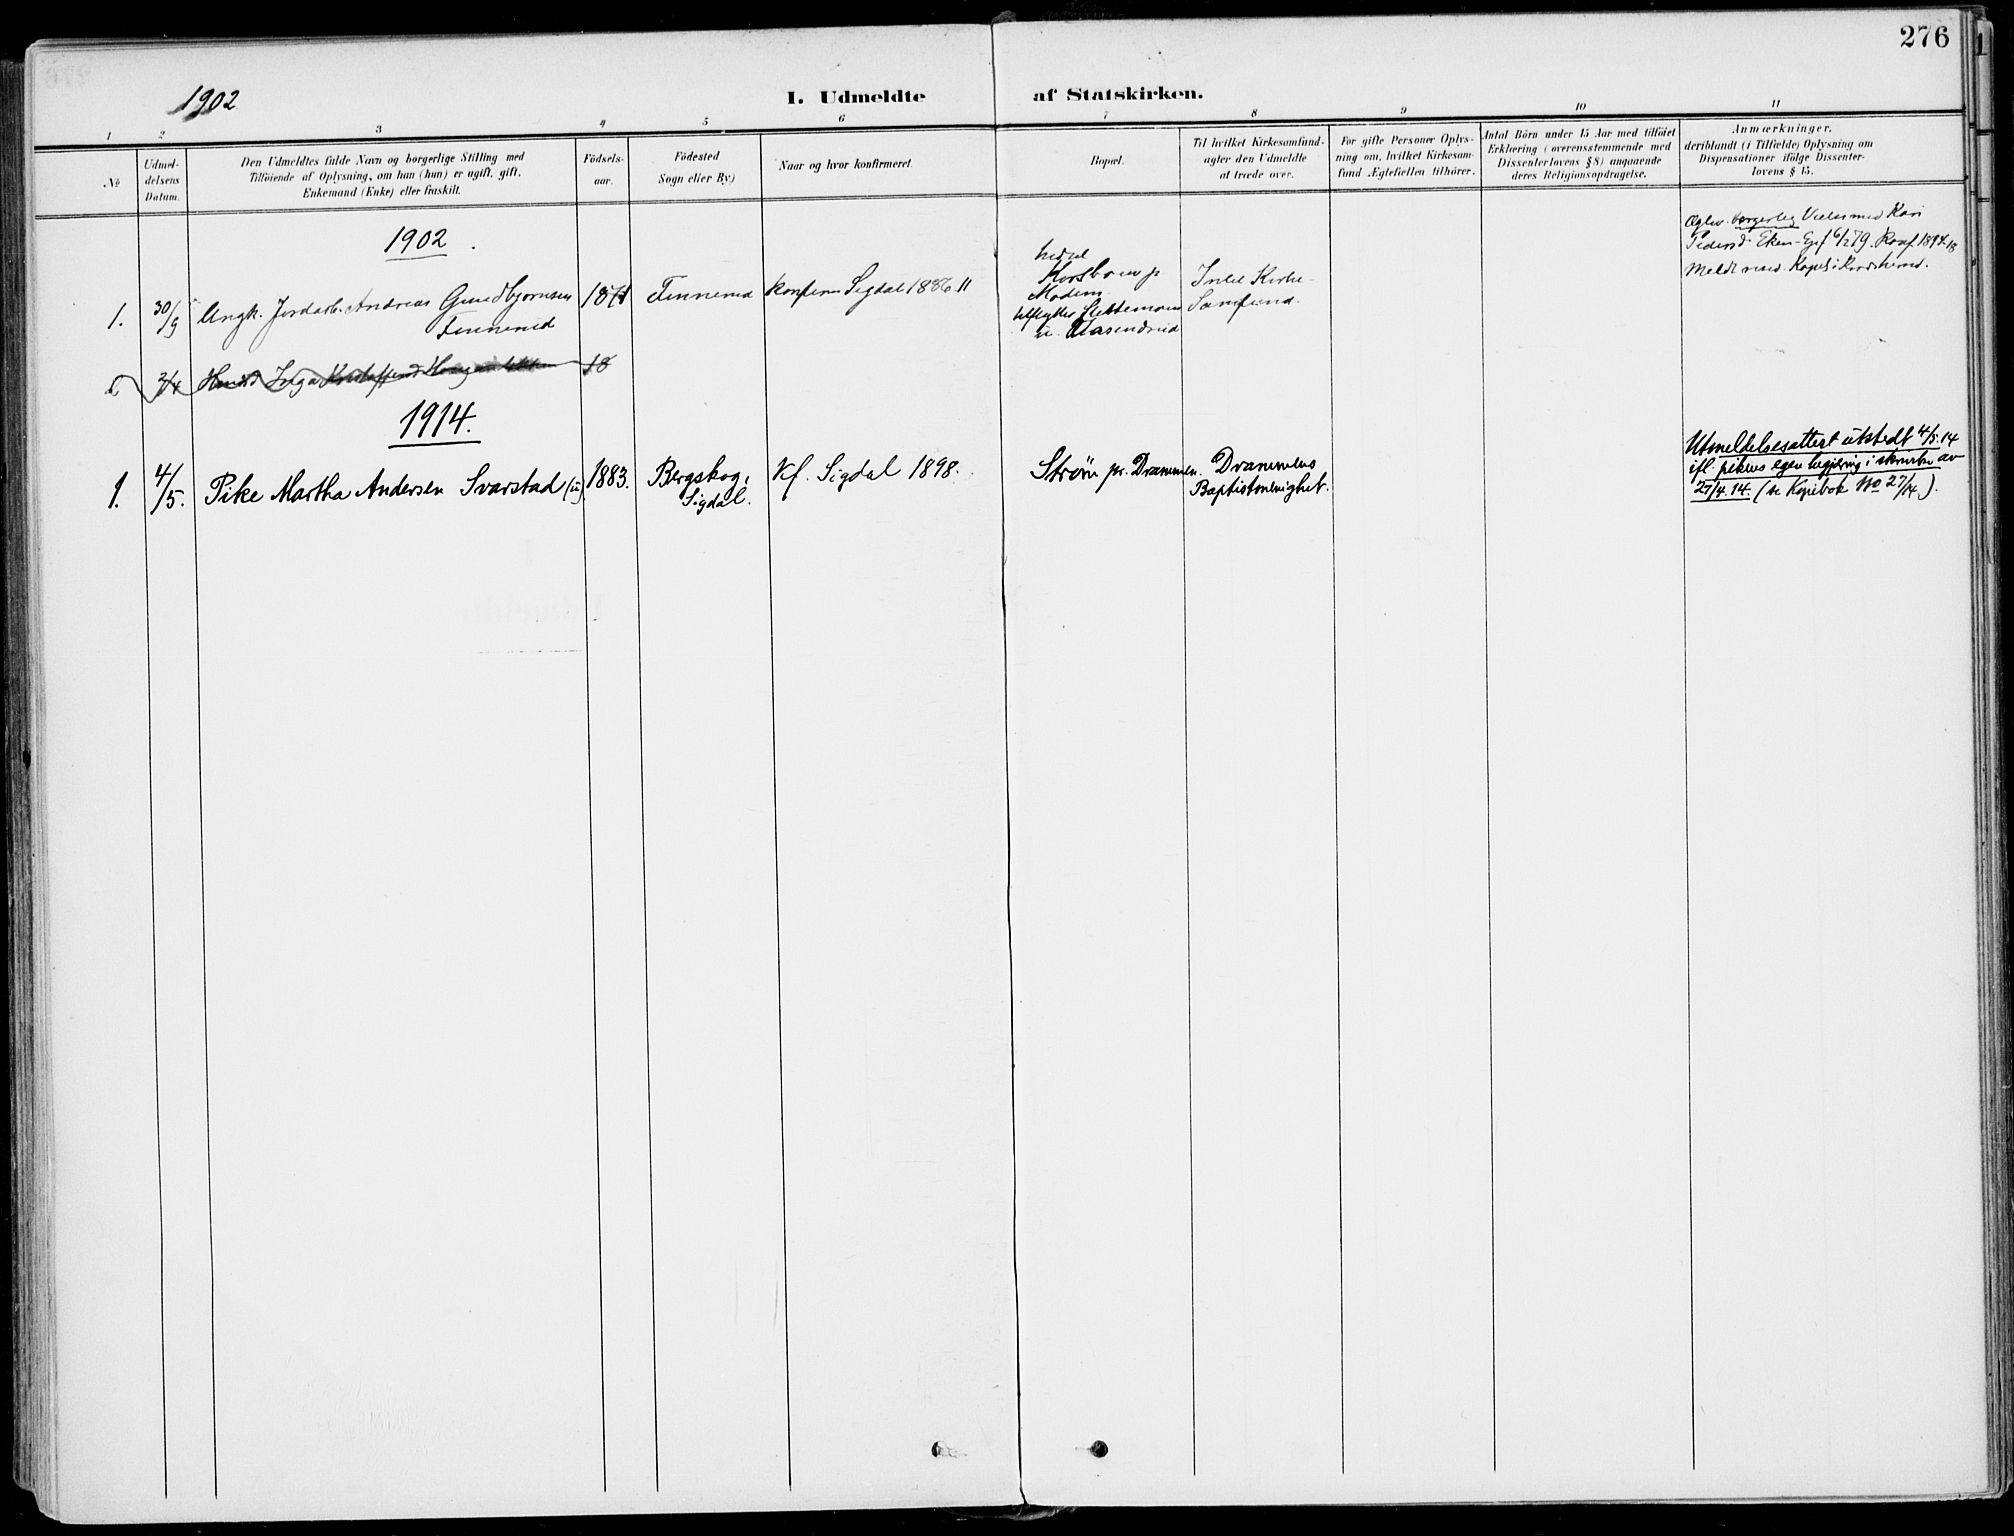 276
1902
I. Udmeldte af Statskirken.
1 2 3 4 5 6 7 8 9 10 11
№
Udmel-
delsens
Datum.
Den Udmeldtes fulde Navn og borgerlige Stilling med
Tilföiende af Oplysning, om han (hun) er ugift, gift,
Enkemand (Enke) eller fraskilt.
Födsels-
aar.
Födested
Sogn eller By.)
Naar og hvor konfirmeret.
Bopæl.
Til hvilket Kirkesamfund
agter den Udmeldte
at træde over.
For gifte Personer Oplys-
ning om, hvilket Kirkesam-
fund Ægtefællen tilhörer.
Antal Börn under 15 Aar med tilföiet
Erklæring (overensstemmende med
Dissenterlovens § 8) angaaende
deres Religionsopdragelse.
Anmærkninger,
deriblandt (i Tilfælde) Oplysning om
Dispensationer ifölge Dissenter-
lovens § 15.
1902
1.
30/9
Ungk. Jordarb. Andreas Gundbjørnsen
1871
konfirm Sigdal 1886. 11
Modum
Intet Kirke-
Samfund.
borgerlig Vielse med Kari
1914.
1.
4/5.
Pike Martha Andersen Svarstad (u)
1883.
Bergskog,
Sigdal.
Kf. Sigdal 1898.
Strøm pr. Drammen.
Drammens
Baptistmenighet.
Utmeldelsesattest utstedt 4/5.14
ifl. pikens egen begjæring i skrivelse av
27/4.14. (se Kopibok No 27/14.).